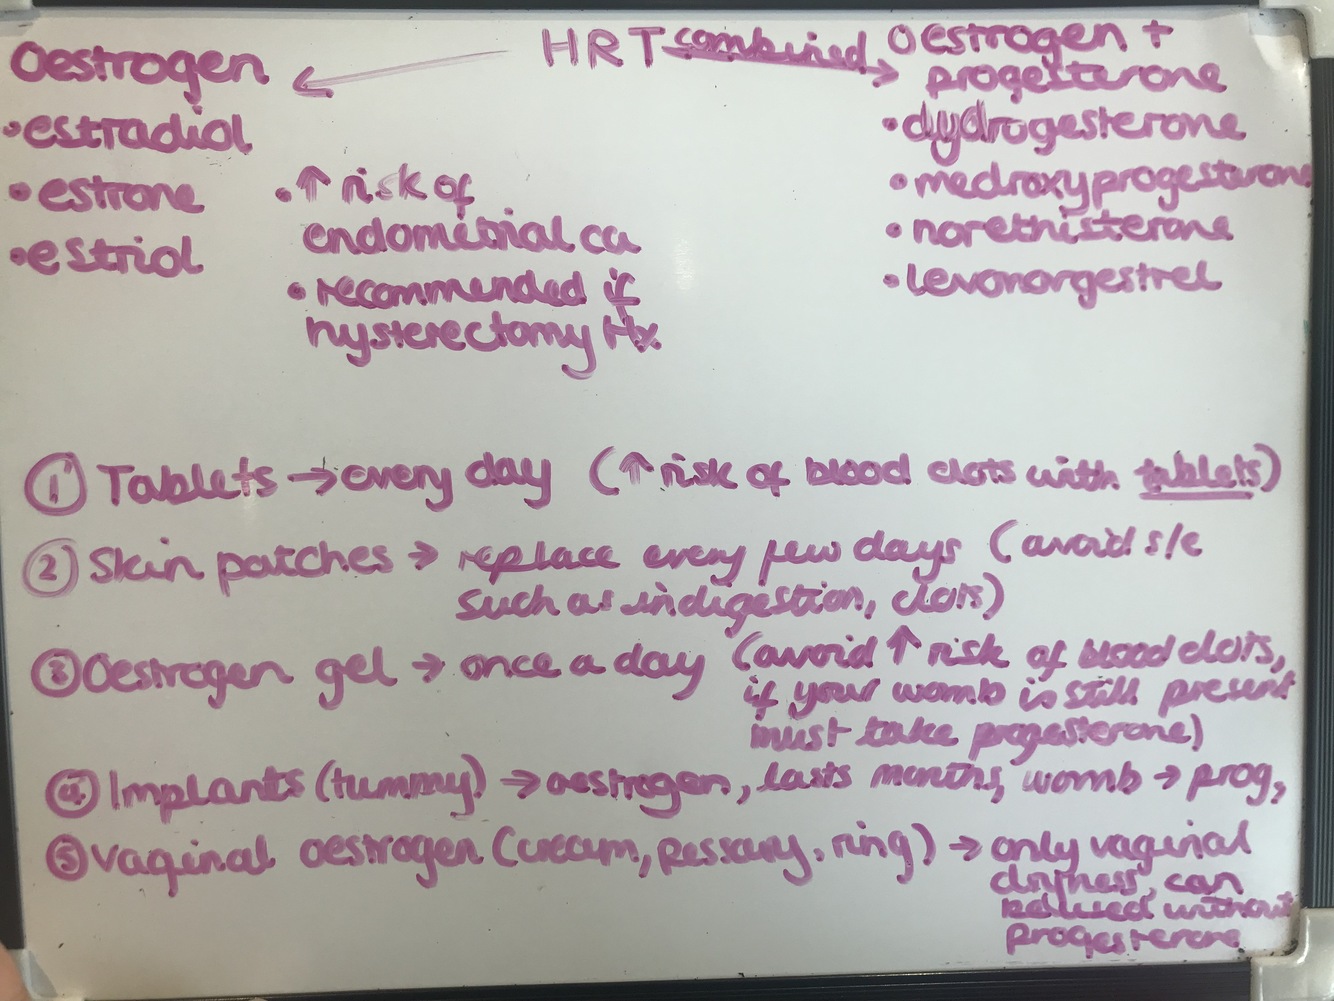 HRT
Oestrogen
• estradiol
• estrone
• estriol
• ↑ risk of
endometrial ca
• recommended if
hysterectomy Hx
combined
Oestrogen +
progesterone
• dydrogesterone
• medroxyprogesterone
• norethisterone
• levonorgestrel
① Tablets → every day (↑ risk of blood clots with tablets)
② Skin patches → replace every few days (avoid s/e
such as indigestion, clots)
③ Oestrogen gel → once a day (avoid ↑ risk of blood clots,
if your womb is still present
must take progesterone)
④ Implants (tummy) → oestrogen, lasts months, womb → prog,
⑤ Vaginal oestrogen (cream, pessary, ring) → only vaginal
dryness, can
be used without
progesterone